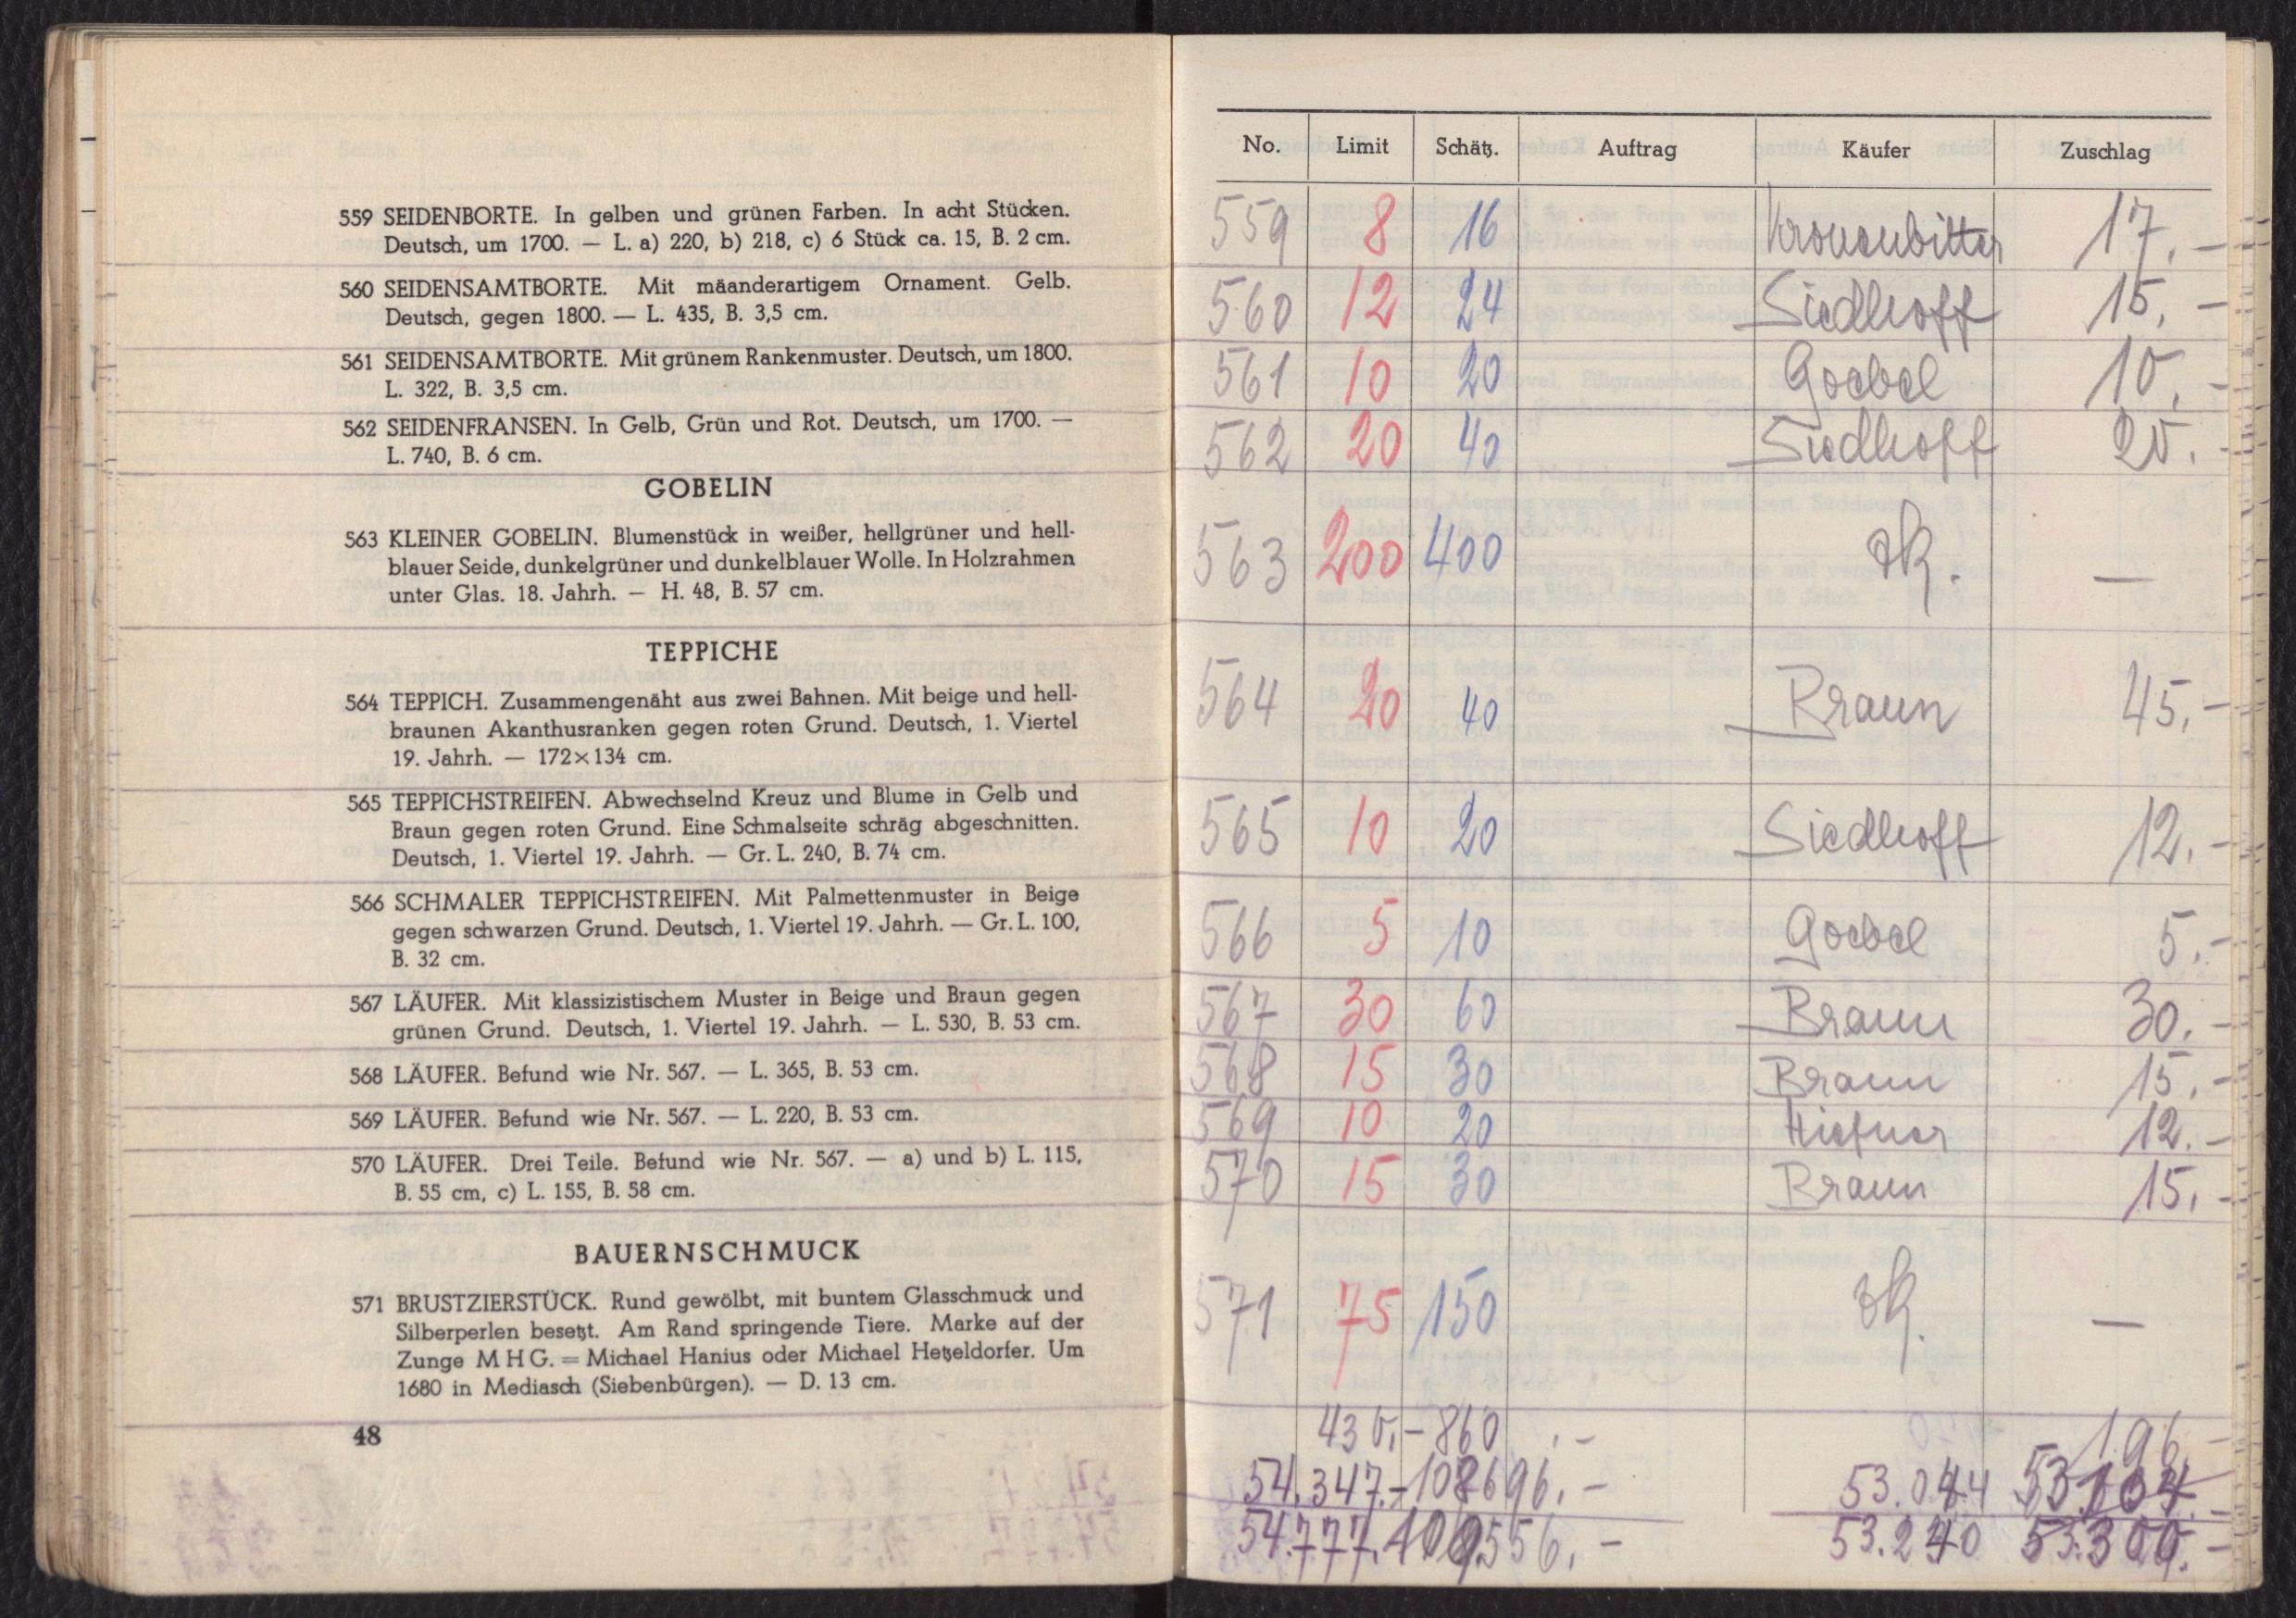 559 SEIDENBORTE. In gelben und grünen Farben. In acht Stücken.
Deutsch, um 1700. — L. a) 220, b) 218, c) 6 Stück ca. 15, B. 2 cm.
560 SEIDENSAMTBORTE. Mit mäanderartigem Ornament. Gelb.
Deutsch, gegen 1800. — L. 435, B. 3,5 cm.
561 SEIDENSAMTBORTE. Mit grünem Rankenmuster. Deutsch, um 1800.
L. 322, B. 3,5 cm.
562 SEIDENFRANSEN. In Gelb, Grün und Rot. Deutsch, um 1700. —
L. 740, B. 6 cm.
GOBELIN
563 KLEINER GOBELIN. Blumenstück in weißer, hellgrüner und hell-
blauer Seide, dunkelgrüner und dunkelblauer Wolle. In Holzrahmen
unter Glas. 18. Jahrh. — H. 48, B. 57 cm.
TEPPICHE
564 TEPPICH. Zusammengenäht aus zwei Bahnen. Mit beige und hell-
braunen Akanthusranken gegen roten Grund. Deutsch, 1. Viertel
19. Jahrh. — 172×134 cm.
565 TEPPICHSTREIFEN. Abwechselnd Kreuz und Blume in Gelb und
Braun gegen roten Grund. Eine Schmalseite schräg abgeschnitten.
Deutsch, 1. Viertel 19. Jahrh. — Gr. L. 240, B. 74 cm.
566 SCHMALER TEPPICHSTREIFEN. Mit Palmettenmuster in Beige
gegen schwarzen Grund. Deutsch, 1. Viertel 19. Jahrh. — Gr. L. 100,
B. 32 cm.
567 LÄUFER. Mit klassizistischem Muster in Beige und Braun gegen
grünen Grund. Deutsch, 1. Viertel 19. Jahrh. — L. 530, B. 53 cm.
568 LÄUFER. Befund wie Nr. 567. — L. 365, B. 53 cm.
569 LÄUFER. Befund wie Nr. 567. — L. 220, B. 53 cm.
570 LÄUFER. Drei Teile. Befund wie Nr. 567. — a) und b) L. 115,
B. 55 cm, c) L. 155, B. 58 cm.
BAUERNSCHMUCK
571 BRUSTZIERSTÜCK. Rund gewölbt, mit buntem Glasschmuck und
Silberperlen besetzt. Am Rand springende Tiere. Marke auf der
Zunge M H G. = Michael Hanius oder Michael Hetzeldorfer. Um
1680 in Mediasch (Siebenbürgen). — D. 13 cm.
48
No. Limit Schätz. Auftrag Käufer Zuschlag
559 8 16 Kronenbitter 17.—
560 12 24 Siedhoff 15.—
561 10 20 Goebel 10.—
562 20 40 Siedhoff 20.—
563 200 400 —
564 20 40 Braun 45.—
565 10 20 Siedhoff 12.—
566 5 10 Goebel 5.—
567 30 60 Braun 30.—
568 15 30 Braun 15.—
569 10 20 12.—
570 15 30 Braun 15.—
571 75 150 —
430.— 860.— 196.—
54.347.— 108696.— 53.044 53.104.—
54.777. 109556.— 53.240 53.300.—